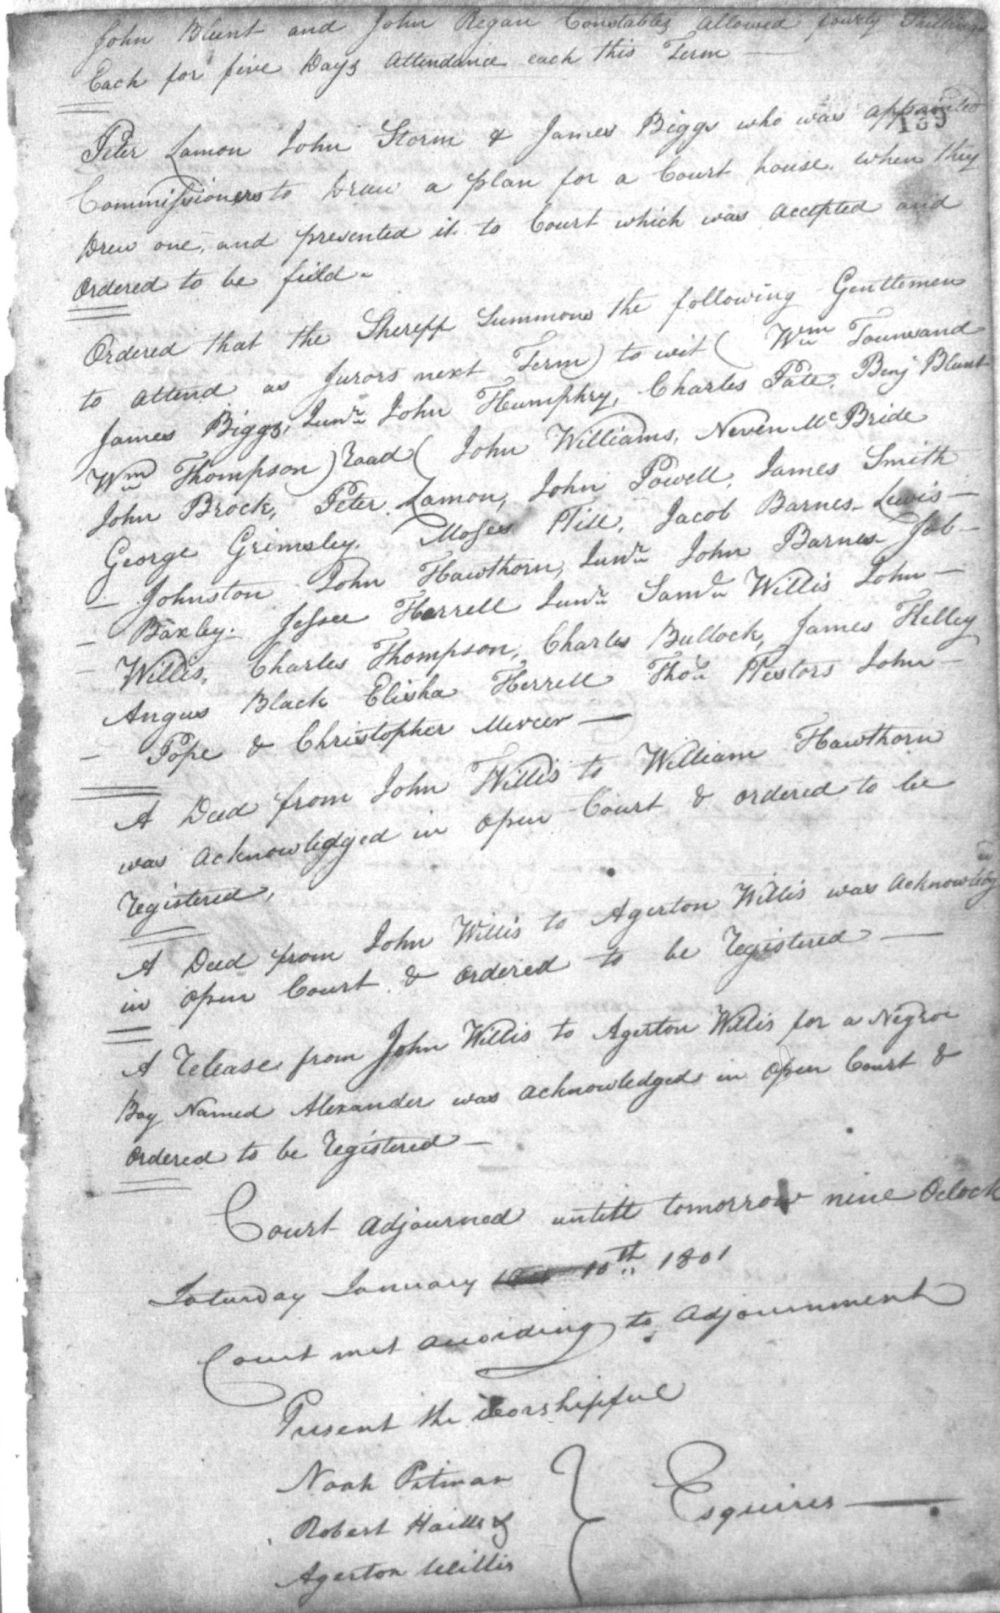 John Blunt and John Regan Constables allowed fourty Shillings
Each for five Days attendance each this Term —
139
Peter Lamon John Storm & James Biggs who was appointed
Commissioners to Draw a plan for a Court house. when they
Drew one, and presented it to Court which was accepted and
Ordered to be field.
Ordered that the Sheriff Summons the following Genttemen
to attend as Jurors next Term) to wit ( Wm Tounsand
James Biggs, Junr John Humphry, Charles Pate, Benj Blunt
Wm Thompson) Road ( John Williams, Neven McBride
John Brock, Peter Lamon, John Powell, James Smith
George Grimsley, Moses Hill, Jacob Barnes. Lewis —
— Johnston John Hawthorn, Junr John Barnes Job —
— Baxley. Jessee Herrell Junr Saml Willis John —
Willis, Charles Thompson, Charles Bullock, James Kelley
Angus Black Elisha Herrell Thos Nestors John —
— Pope & Christopher Mercer —
A Deed from John Willis to William Hawthorn
was acknowledged in open Court & ordered to be
registered,
A Deed from John Willis to Agerton Willis was acknowledg
in open Court & ordered to be registered —
A release from John Willis to Agerton Willis for a Negroe
Boy Named Alexander was acknowledged in open Court &
ordered to be registered —
Court adjourned untill tomorrow nine Oclock
Saturday January 10th 1801
Court met according to adjournment
Present the worshipfull
Noah Pitman
Robert Hails &
Agerton Willis
Esquires —